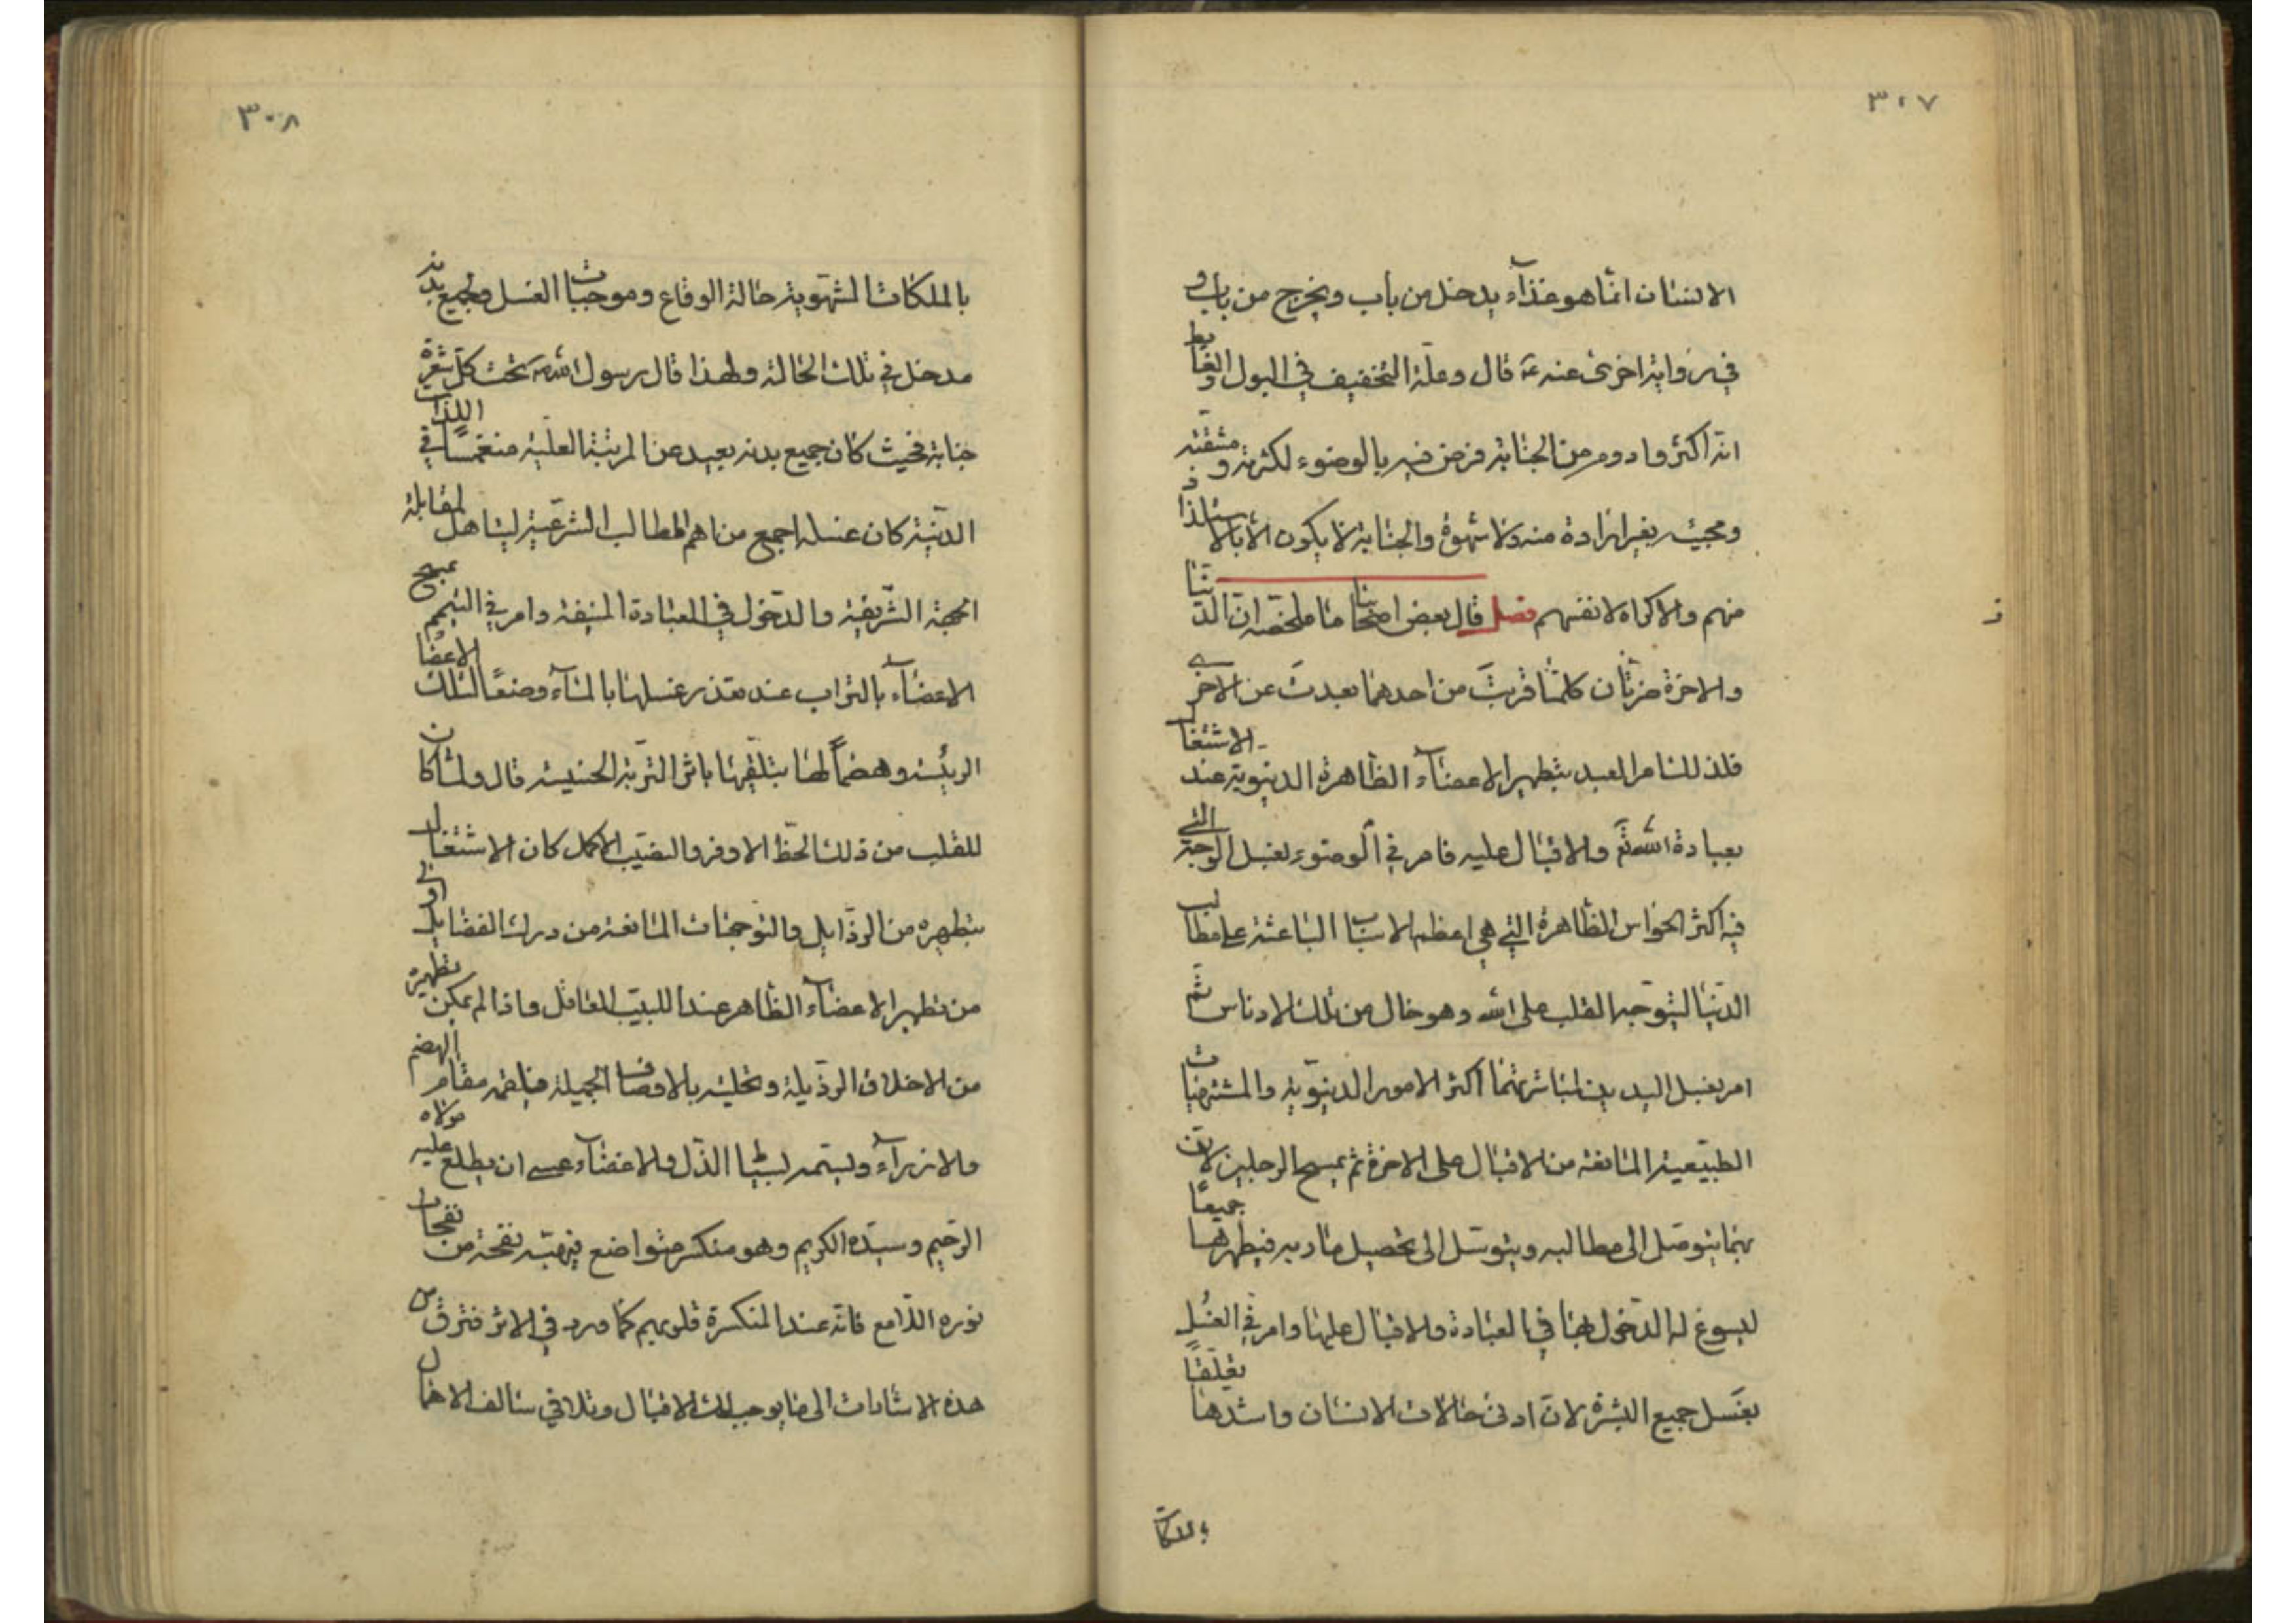 ٣٠٧
الانسان انما هو غذآء يدخل من باب ويخرج من باب و
في رواية اخرى عنه ع قال وعلة التخفيف في البول والغايط
انه اكثر وادوم من الجنابة فرض فيه بالوضوء لكثرته ومشقته
ومجيئه بغير ارادة منه ولا شهوة والجنابة لا يكون الا بالاستلذاذ
منهم والاكراه لانفسهم فصل قال بعض اصحابنا ما ملخصه ان الدنيا
والاخرة ضرتان كلما قربت من احدهما بعدت عن الاخرى
فلذلك امر العبد بتطهير الاعضآء الظاهرة الدنيوية عند الاشتغال
بعبادة الله تعالى والاقبال عليه فامر في الوضوء بغسل الوجه التي
فيه اكثر الحواس الظاهرة التي هي اعظم الاسباب الباعثة على مطالب
الدنيا ليتوجه القلب على الله وهو خال من تلك الادناس ثم
امر بغسل اليدين لمباشرتهما اكثر الامور الدنيوية والمشتهيات
الطبيعية المانعة من الاقبال على الاخرة ثم بمسح الرجلين لان
بهما يتوصل الى مطالبه ويتوسل الى تحصيل مآربه فيطهرها جميعًا
ليسوغ له الدخول بها في العبادة والاقبال عليها وامر في الغُسل
بغَسل جميع البشرة لان ادنى حالات الانسان واشدها تعلّقًا
بالملكات
٣٠٨
بالملكات الشهوية حالة الوقاع وموجبات الغسل ولجميع بدنه
مدخل في تلك الحالة ولهذا قال رسول الله ص تحت كل شعرة
جنابة فحيث كان جميع بدنه بعيد عن المرتبة العلية منغمسًا في اللذات
الدنية كان غسله اجمع من اهم المطالب الشرعية ليتاهل لمقابلة
الجهة الشريفة والدخول في العبادة المنيفة وامر في التيمم بمسح
الاعضآء بالتراب عند تعذر غسلها بالمآء وضعًا لتلك الاعضا
الرئيسة وهضمًا لها بتلقيها باثر التربة الخسيسة قال ولما كان
للقلب من ذلك الحظ الاوفر والنصيب الاكمل كان الاشتغال
بتطهيره من الرذايل والتوجهات المانعة من درك الفضايل اولى
من تطهير الاعضآء الظاهر عند اللبيب العاقل واذا لم يمكن تطهيره
من الاخلاق الرذيلة وتحليه بالاوصاف الجميلة فليقمه مقام الهضم
والازرآء وليستمد لسياط الذل والاغضآء عسى ان يطلع عليه مولاه
الرحيم وسيده الكريم وهو منكسر متواضع فيهبه نفحة من نفحات
نوره اللامع فانه عند المنكسرة قلوبهم كما ورد في الاثر فترق من
هذه الاشارات الى ما يوجب لك الاقبال وتلافي سالف الاهمال